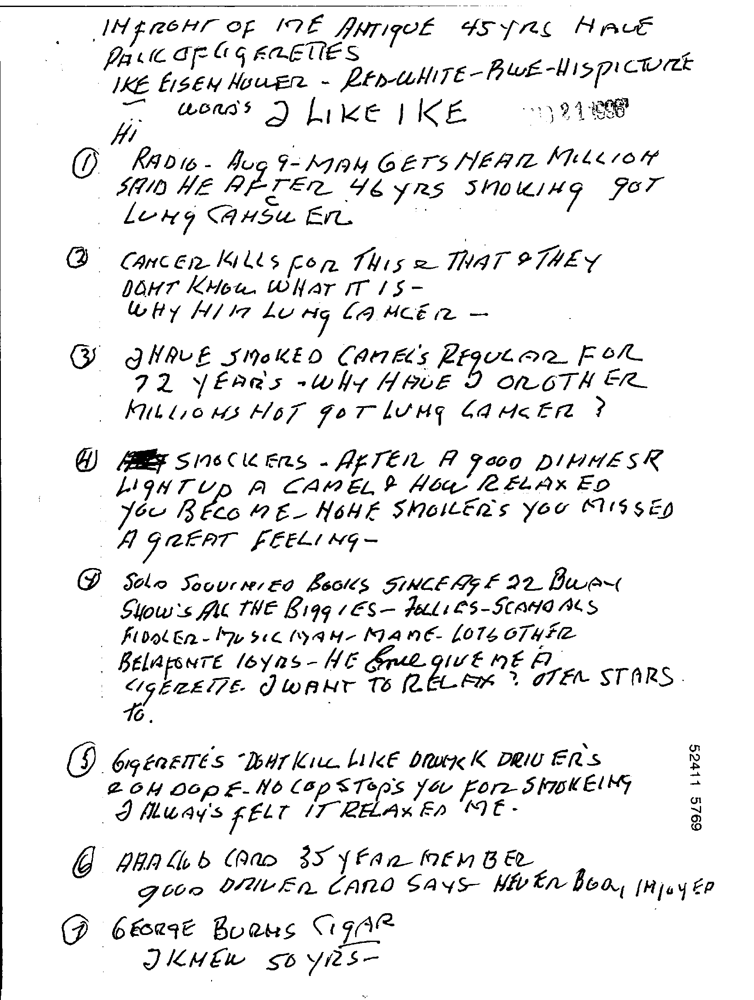 IN FRONT OF ME ANTIQUE 45 YRS HAVE
PACK OF CIGERETTES
IKE EISENHOWER - RED-WHITE-BLUE-HIS PICTURE
WORD'S I LIKE IKE
21 1996
Hi
① RADIO - AUG 9 - MAN GETS NEAR MILLION
SAID HE AFTER 46 YRS SMOKING GOT
LUNG CANSUER
② CANCER KILLS FOR THIS & THAT & THEY
DONT KNOW WHAT IT IS -
WHY HIM LUNG CANCER -
③ I HAVE SMOKED CAMEL'S REGULAR FOR
72 YEAR'S - WHY HAVE I OR OTHER
MILLIONS NOT GOT LUNG CANCER ?
④ SMOCKERS - AFTER A GOOD DINNESR
LIGHT UP A CAMEL & HOW RELAXED
YOU BECOME - NONE SMOKER'S YOU MISSED
A GREAT FEELING -
④ SOLD SOUVINIED BOOKS SINCE AGE 22 BWAY
SHOW'S ALL THE BIGGIES - FOLLIES - SCANDALS
FIDDLER - MUSIC MAN - MAME - LOTS OTHER
BELAFONTE 10 YRS - HE GIVE ME A
CIGERETTE. I WANT TO RELAX ? OTER STARS
TO.
⑤ CIGERETTE'S DONT KILL LIKE DRUNK DRIVER'S
& ON DOPE - NO COP STOP'S YOU FOR SMOKEING
I ALWAY'S FELT IT RELAXED ME.
⑥ AAA CLUB CARD 35 YEAR MEMBER
GOOD DRIVER CARD SAYS NEVER BODY INJOYED
⑦ GEORGE BURNS CIGAR
I KNEW 50 YRS -
52411 5769